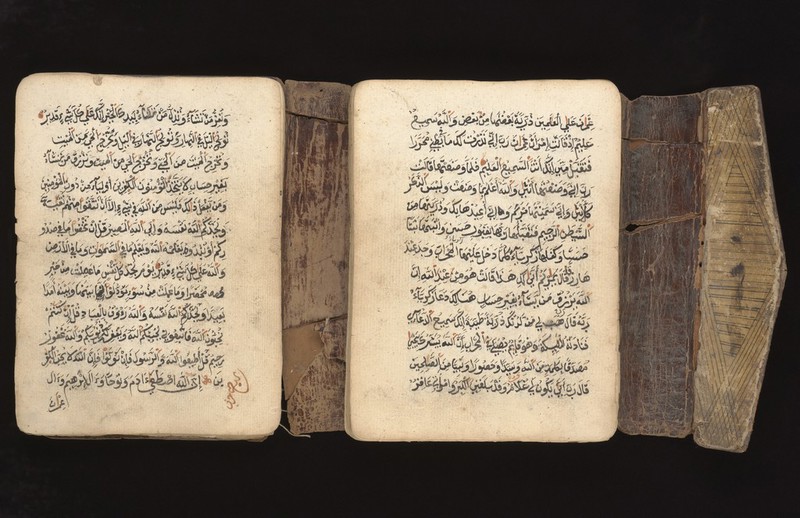 وتعز من تشاء وتذل من تشاء بيدك الخير انك على كل شيء قدير
تولج اليل في النهار وتولج النهار في اليل وتخرج الحي من الميت
وتخرج الميت من الحي وتخرج الحي من الميت وترزق من تشاء
بغير حساب لا يتخذ المومنون الكفرين اولياء من دون المومنين
ومن يفعل ذلك فليس من الله في شيء الا ان تتقوا منهم تقية
ويحذركم الله نفسه والى الله المصير قل ان تخفوا ما في صدو
ركم او تبدوه يعلمه الله ويعلم ما في السموات وما في الارض
والله على كل شيء قدير يوم تجد كل نفس ما عملت من خير
محضرا وما عملت من سوء تود لو ان بينها وبينه امدا
بعيدا ويحذركم الله نفسه والله رءوف بالعباد قل ان كنتم
تحبون الله فاتبعوني يحببكم الله ويغفر لكم ذنوبكم والله غفور
رحيم قل اطيعوا الله والرسول فان تولوا فان الله لا يحب الكفر
ين ان الله اصطفى ءادم ونوحا وءال ابرهيم وءال
عمران
عمران على العلمين ذرية بعضها من بعض والله سميع
عليم اذ قالت امرات عمران رب اني نذرت لك ما في بطني محررا
فتقبل مني انك انت السميع العليم فلما وضعتها قالت
رب اني وضعتها انثى والله اعلم بما وضعت وليس الذكر
كالانثى واني سميتها مريم واني اعيذها بك وذريتها من
الشيطن الرجيم فتقبلها ربها بقبول حسن وانبتها نباتا
حسنا وكفلها زكرياء كلما دخل عليها المحراب وجد عند
ها رزقا قال يمريم انى لك هذا قالت هو من عند الله ان
الله يرزق من يشاء بغير حساب هنالك دعا زكرياء
ربه قال رب هب لي من لدنك ذرية طيبة انك سميع الدعاء
فنادته الملئكة وهو قائم يصلي في المحراب ان الله يبشرك بيحيى
مصدقا بكلمة من الله وسيدا وحصورا ونبيا من الصلحين
قال رب انى يكون لي غلام وقد بلغني الكبر وامراتي عاقر